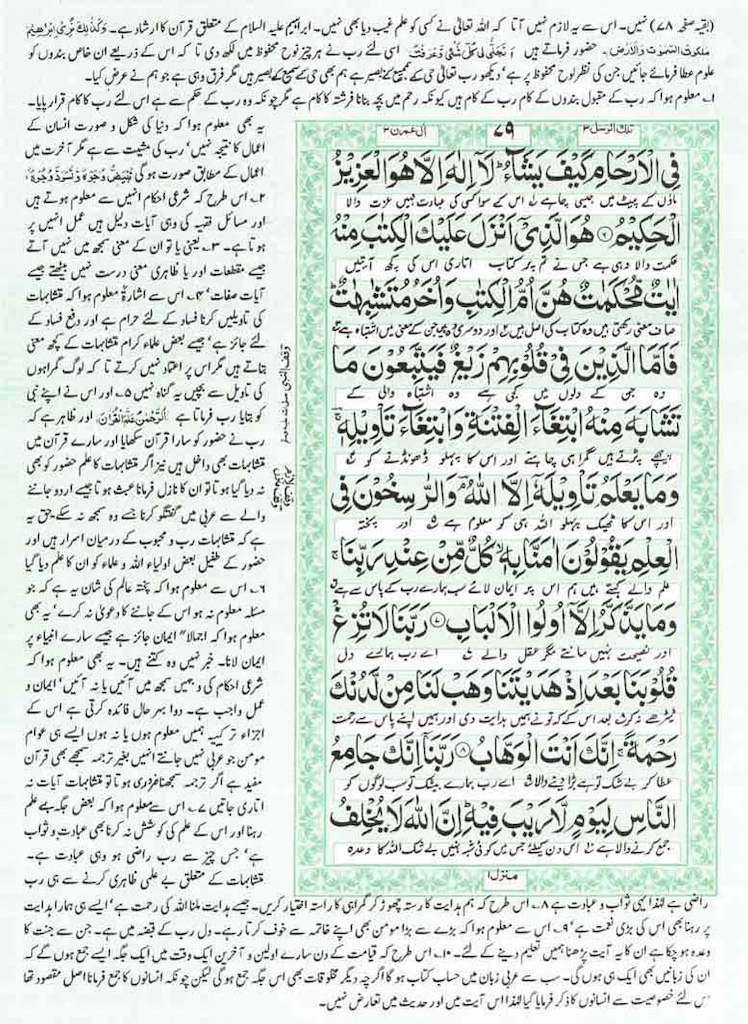 (بقیہ صفحہ ۷۸) نہیں۔ اس سے یہ لازم نہیں آتا کہ اللہ تعالیٰ نے کسی کو علم غیب دیا بھی نہیں۔ ابراہیم علیہ السلام کے متعلق قرآن کا ارشاد ہے۔ وَكَذٰلِكَ نُرِيْ اِبْرٰهِيْمَ
مَلَكُوْتَ السَّمٰوٰتِ وَالْاَرْضِ۔ حضور فرماتے ہیں فَتَجَلّٰى لِيْ كُلُّ شَيْءٍ وَّعَرَفْتُ۔ اسی لئے رب نے ہر چیز لوح محفوظ میں لکھ دی تا کہ اس کے ذریعے ان خاص بندوں کو
علوم عطا فرمائے جائیں جن کی نظر لوح محفوظ پر ہے' دیکھو رب تعالیٰ حی کے سمیع کے بصیر ہے ہم بھی حی کے سمیع کے بصیر ہیں مگر فرق وہی ہے جو ہم نے عرض کیا۔
۱۔ معلوم ہوا کہ رب کے مقبول بندوں کے کام رب کے کام ہیں کیونکہ رحم میں بچہ بنانا فرشتہ کا کام ہے مگر چونکہ وہ رب کے حکم سے ہے اس لئے رب کا کام قرار پایا۔
تلك الرسل ۳
۷۹
اٰل عمرٰن ۳
فِى الْاَرْحَامِ كَيْفَ يَشَآءُ ؕ لَاۤ اِلٰهَ اِلَّا هُوَ الْعَزِيْزُ
ماؤں کے پیٹ میں جیسی چاہے ۱؎ اس کے سوا کسی کی عبادت نہیں عزت والا
الْحَكِيْمُ ۝۶ هُوَ الَّذِىْۤ اَنْزَلَ عَلَيْكَ الْكِتٰبَ مِنْهُ
حکمت والا وہی ہے جس نے تم پر یہ کتاب اتاری اس کی کچھ آیتیں
اٰيٰتٌ مُّحْكَمٰتٌ هُنَّ اُمُّ الْكِتٰبِ وَاُخَرُ مُتَشٰبِهٰتٌ ؕ
صاف معنی رکھتی ہیں وہ کتاب کی اصل ہیں ۲؎ اور دوسری وہ ہیں جن کے معنی میں اشتباہ ہے ۳؎
فَاَمَّا الَّذِيْنَ فِىْ قُلُوْبِهِمْ زَيْغٌ فَيَتَّبِعُوْنَ مَا
وہ جن کے دلوں میں کجی ہے وہ اشتباہ والی کے
تَشَابَهَ مِنْهُ ابْتِغَآءَ الْفِتْنَةِ وَابْتِغَآءَ تَاْوِيْلِهٖ ؔۚ
پیچھے پڑتے ہیں گمراہی چاہنے اور اس کا پہلو ڈھونڈنے کو ۴؎
وَمَا يَعْلَمُ تَاْوِيْلَهٗۤ اِلَّا اللّٰهُ ؔۘ وَالرّٰسِخُوْنَ فِى
اور اس کا ٹھیک پہلو اللہ ہی کو معلوم ہے ۵؎ اور پختہ
الْعِلْمِ يَقُوْلُوْنَ اٰمَنَّا بِهٖ ۙ كُلٌّ مِّنْ عِنْدِ رَبِّنَا ۚ
علم والے کہتے ہیں ہم اس پر ایمان لائے سب ہمارے رب کے پاس سے ہے ۶؎
وَمَا يَذَّكَّرُ اِلَّاۤ اُولُوا الْاَلْبَابِ ۝۷ رَبَّنَا لَا تُزِغْ
اور نصیحت نہیں مانتے مگر عقل والے ۷؎ اے رب ہمارے دل
قُلُوْبَنَا بَعْدَ اِذْ هَدَيْتَنَا وَهَبْ لَنَا مِنْ لَّدُنْكَ
ٹیڑھے نہ کر ۸؎ بعد اس کے کہ تو نے ہمیں ہدایت دی اور ہمیں اپنے پاس سے رحمت
رَحْمَةً ۚ اِنَّكَ اَنْتَ الْوَهَّابُ ۝۸ رَبَّنَاۤ اِنَّكَ جَامِعُ
عطا کر بے شک تو ہے بڑا دینے والا ۹؎ اے رب ہمارے بیشک تو سب لوگوں کو
النَّاسِ لِيَوْمٍ لَّا رَيْبَ فِيْهِ ؕ اِنَّ اللّٰهَ لَا يُخْلِفُ
جمع کرنے والا ہے ۱۰؎ اس دن کیلئے جس میں کوئی شبہ نہیں بے شک اللہ کا وعدہ
منزل ۱
یہ بھی معلوم ہوا کہ دنیا کی شکل و صورت انسان کے
اعمال کا نتیجہ نہیں' رب کی مشیت سے ہے مگر آخرت میں
اعمال کے مطابق صورت ہوگی تَبْيَضُّ وُجُوْهٌ وَّتَسْوَدُّ وُجُوْهٌ
۲۔ اس طرح کہ شرعی احکام انہیں سے معلوم ہوتے ہیں
اور مسائل فقہیہ کی وہی آیات دلیل ہیں عمل انہیں پر
ہوتا ہے۔ ۳۔ یعنی یا تو ان کے معنی سمجھ میں نہیں آتے
جیسے مقطعات اور یا ظاہری معنی درست نہیں بیٹھتے جیسے
آیات صفات' ۴۔ اس سے اشارۃً معلوم ہوا کہ متشابہات
کی تاویلیں کرنا فساد کے لئے حرام ہے اور دفع فساد کے
لئے جائز ہے' جیسے بعض علماء کرام متشابہات کے کچھ معنی
بتاتے ہیں مگر اس پر اعتماد نہیں کرتے تا کہ لوگ گمراہوں
کی تاویل سے بچیں یہ گناہ نہیں ۵۔ اور اس نے اپنے نبی
کو بتایا رب فرماتا ہے اَلرَّحْمٰنُ عَلَّمَ الْقُرْاٰنَ۔ اور ظاہر ہے کہ
رب نے حضور کو سارا قرآن سکھایا اور سارے قرآن میں
متشابہات بھی داخل ہیں نیز اگر متشابہات کا علم حضور کو بھی
نہ دیا گیا ہو تو ان کا نازل فرمانا عبث ہو گا جیسے اردو جاننے
والے سے عربی میں گفتگو کرنا جسے وہ سمجھ نہ سکے حق یہ
ہے کہ متشابہات رب و محبوب کے درمیان اسرار ہیں اور
حضور کے طفیل بعض اولیاء اللہ و علماء کو ان کا علم دیا گیا
۶۔ اس سے معلوم ہوا کہ پختہ عالم کی شان یہ ہے کہ جو
مسئلہ معلوم نہ ہو اس کے جاننے کا دعویٰ نہ کرے' یہ بھی
معلوم ہوا کہ اجمالاً ایمان جائز ہے جیسے سارے انبیاء پر
ایمان لانا۔ خبر نہیں وہ کتنے ہیں۔ یہ بھی معلوم ہوا کہ
شرعی احکام کی وجہیں سمجھ میں آئیں یا نہ آئیں' ایمان و
عمل واجب ہے۔ دوا بہر حال فائدہ کرتی ہے اس کے
اجزاء ترکیبیہ ہمیں معلوم ہوں یا نہ ہوں ایسے ہی عوام
مومن جو عربی نہیں جانتے انہیں بغیر ترجمہ سمجھے بھی قرآن
مفید ہے اگر ترجمہ سمجھنا ضروری ہوتا تو متشابہات آیات نہ
اتاری جاتیں ۷۔ اس سے معلوم ہوا کہ بعض جگہ بے علم
رہنا اور اس کے علم کی کوشش نہ کرنا بھی عبادت و ثواب
ہے' جس چیز سے رب راضی ہو وہی عبادت ہے۔
متشابہات کے متعلق بے علمی ظاہری کرنے سے ہی رب
راضی ہے لہٰذا یہی ثواب و عبادت ہے ۸۔ اس طرح کہ ہم ہدایت کا رستہ چھوڑ کر گمراہی کا راستہ اختیار کریں۔ جیسے ہدایت ملنا اللہ کی رحمت ہے' ایسے ہی ہمارا ہدایت
پر رہنا بھی اس کی بڑی نعمت ہے' ۹۔ اس سے معلوم ہوا کہ بڑے سے بڑا مومن بھی اپنے خاتمہ سے خوف کرتا رہے۔ دل رب کے قبضہ میں ہے۔ جن سے جنت کا
وعدہ ہو چکا ہے ان کا یہ آیت پڑھنا ہمیں تعلیم دینے کے لئے۔ ۱۰۔ اس طرح کہ قیامت کے دن سارے اولین و آخرین ایک وقت میں ایک جگہ ایسے جمع ہوں گے کہ
ان کی زبانیں بھی ایک ہی ہوں گی۔ سب سے عربی زبان میں حساب کتاب ہو گا اگرچہ دیگر مخلوقات بھی اس جگہ جمع ہو گی لیکن چونکہ انسانوں کا جمع فرمانا اصل مقصود تھا
اس لئے خصوصیت سے انسانوں کا ذکر فرمایا گیا لہٰذا اس آیت میں اور حدیث میں تعارض نہیں۔